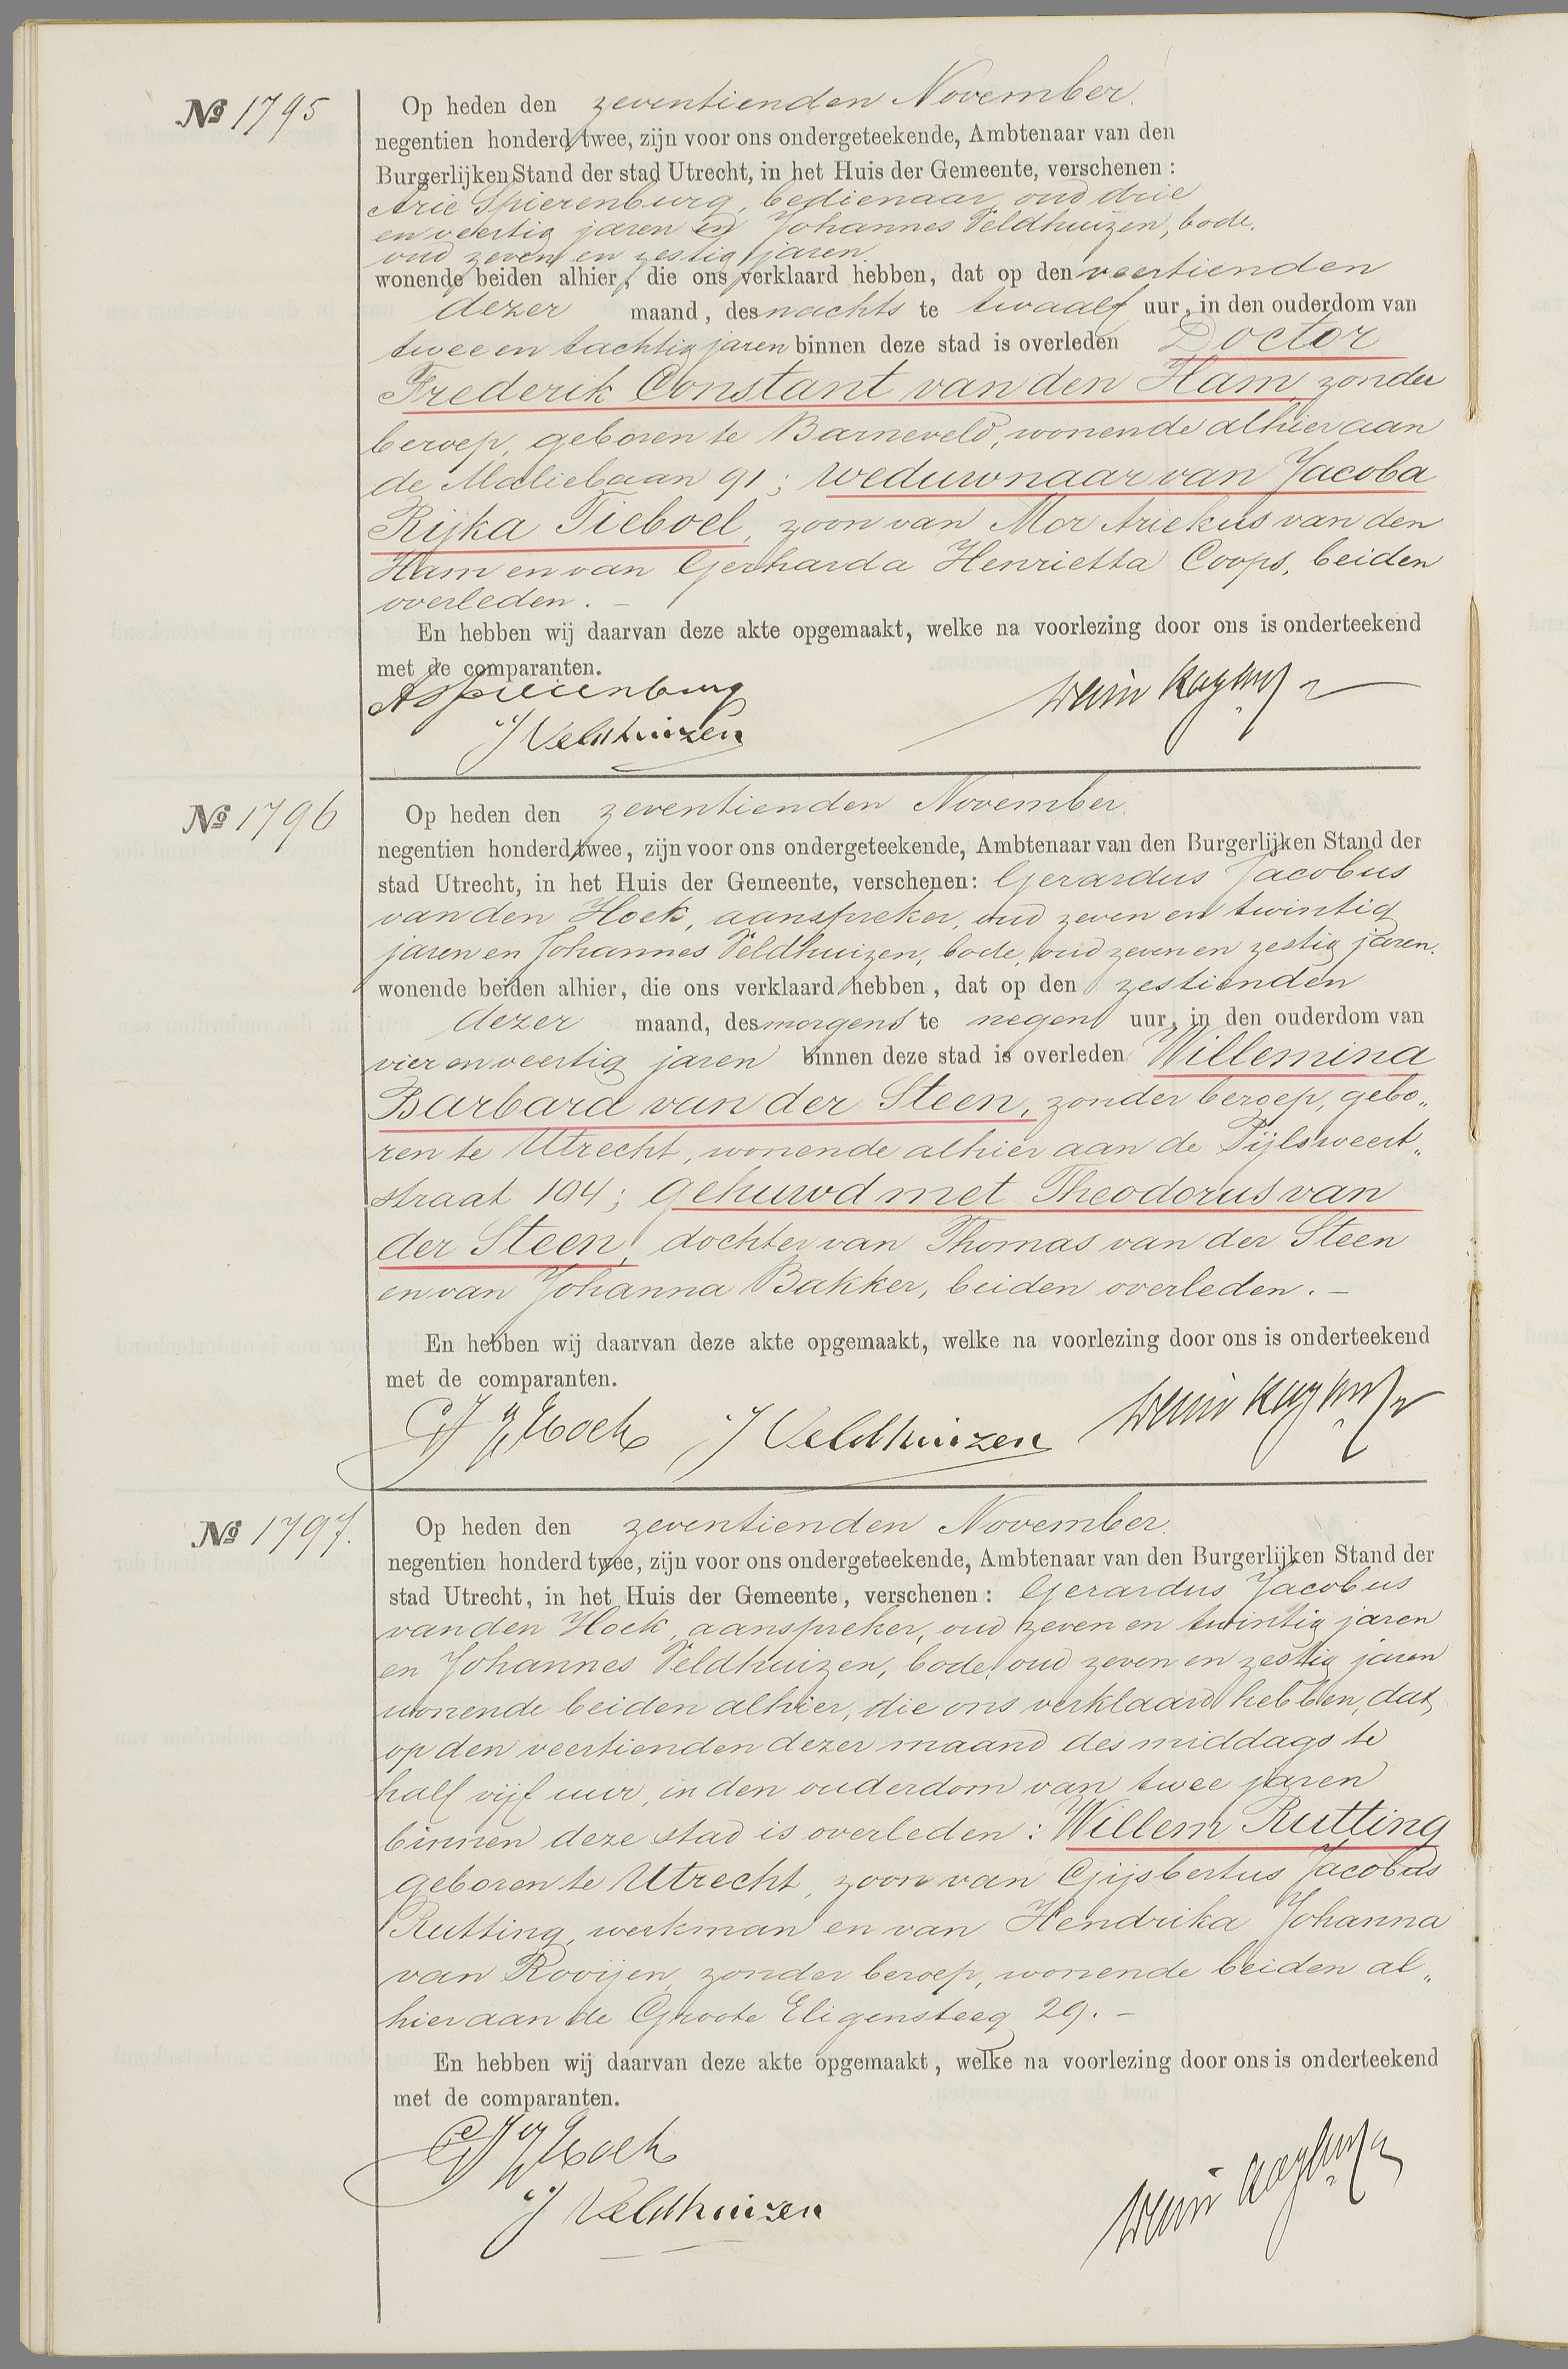 No 1795
Op heden den zeventienden November.
negentien honderd twee, zijn voor ons ondergeteekende, Ambtenaar van den
Burgerlijken Stand der stad Utrecht, in het Huis der Gemeente, verschenen:
Arie Spierenburg, bedienaar, oud drie
en veertig jaren en Johannes Veldhuizen, bode,
oud zeven en zestig jaren
wonende beiden alhier, die ons verklaard hebben, dat op den veertienden
dezer maand, des nachts te twaalf uur, in den ouderdom van
twee en tachtig jaren binnen deze stad is overleden Doctor
Frederik Constant van den Ham, zonder
beroep, geboren te Barneveld, wonende alhier aan
de Maliebaan 91; weduwnaar van Jacoba
Rijka Tieboel, zoon van Mor Ariekus van den
Ham en van Gerharda Henrietta Coops, beiden
overleden. –
En hebben wij daarvan deze akte opgemaakt, welke na voorlezing door ons is onderteekend
met de comparanten.
A Spierenburg
J Veldhuizen
No 1796
Op heden den zeventienden November.
negentien honderd twee, zijn voor ons ondergeteekende, Ambtenaar van den Burgerlijken Stand der
stad Utrecht, in het Huis der Gemeente, verschenen: Gerardus Jacobus
van den Hoek, aanspreker, oud zeven en twintig
jaren en Johannes Veldhuizen, bode, oud zeven en zestig jaren.
wonende beiden alhier, die ons verklaard hebben, dat op den zestienden
dezer maand, des morgens te negen uur, in den ouderdom van
vier en veertig jaren binnen deze stad is overleden Willemina
Barbara van der Steen, zonder beroep, gebo„
ren te Utrecht, wonende alhier aan de Pijlsweert„
straat 104; gehuwd met Theodorus van
der Steen, dochter van Thomas van der Steen
en van Johanna Bakker, beiden overleden. –
En hebben wij daarvan deze akte opgemaakt, welke na voorlezing door ons is onderteekend
met de comparanten.
GJ vd Hoek J Veldhuizen
No 1797.
Op heden den zeventienden November.
negentien honderd twee, zijn voor ons ondergeteekende, Ambtenaar van den Burgerlijken Stand der
stad Utrecht, in het Huis der Gemeente, verschenen: Gerardus Jacobus
van den Hoek, aanspreker, oud zeven en twintig jaren
en Johannes Veldhuizen, bode, oud zeven en zestig jaren
wonende beiden alhier, die ons verklaard hebben, dat
op den veertienden dezer maand des middags te
half vijf uur, in den ouderdom van twee jaren
binnen deze stad is overleden: Willem Rutting
geboren te Utrecht, zoon van Gijsbertus Jacobus
Rutting, werkman en van Hendrika Johanna
van Rooijen, zonder beroep, wonende beiden al„
hier aan de Groote Eligensteeg 29. –
En hebben wij daarvan deze akte opgemaakt, welke na voorlezing door ons is onderteekend
met de comparanten.
GJ vd Hoek
J Veldhuizen